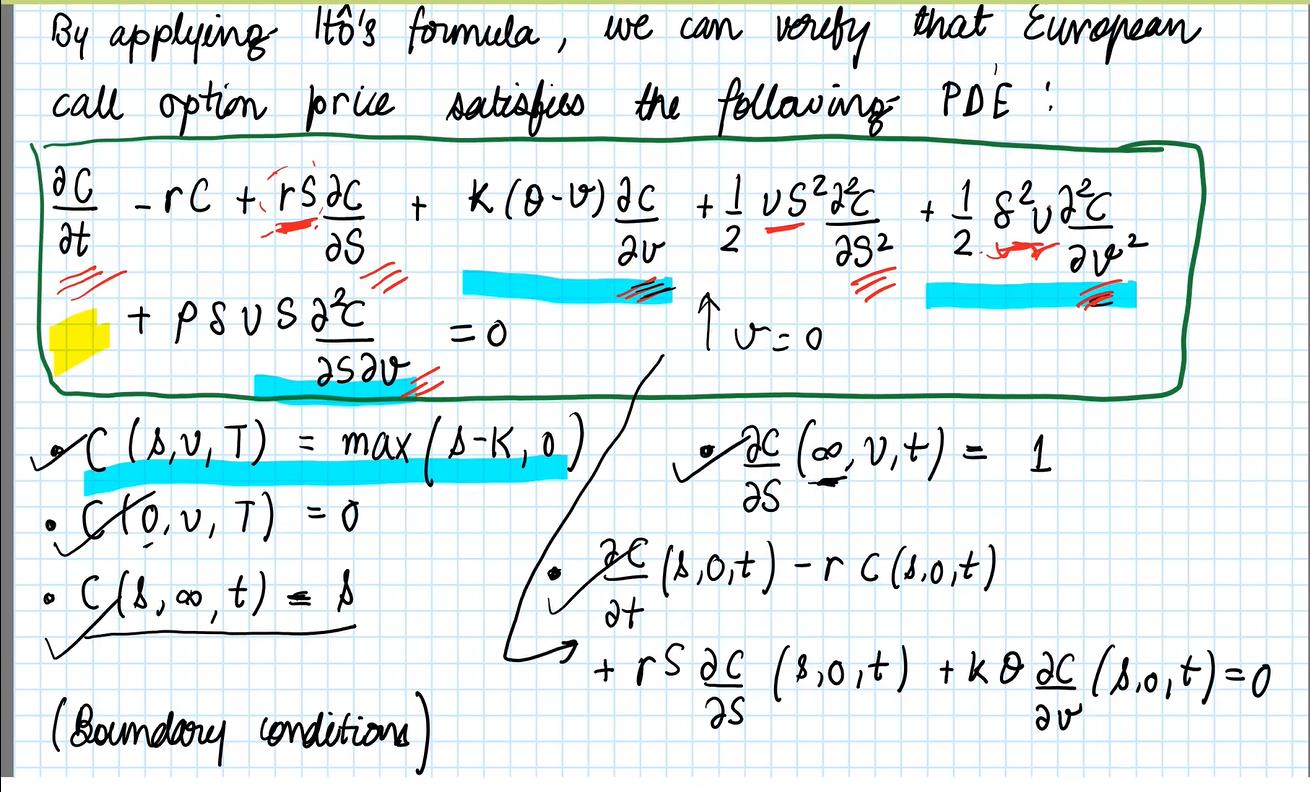 By applying Itô's formula, we can verify that European
call option price satisfies the following PDE :
∂C/∂t - rC + rS ∂C/∂S + K(θ-v) ∂C/∂v + 1/2 vS² ∂²C/∂S² + 1/2 δ²v ∂²C/∂v²
+ ρδvS ∂²C/∂S∂v = 0 ↑ v=0
• C(s,v,T) = max(s-K,0) • ∂C/∂S (∞,v,t) = 1
• C(0,v,T) = 0
• ∂C/∂t (s,0,t) - r C(s,0,t)
• C(s,∞,t) = s
+ rS ∂C/∂S (s,0,t) + kθ ∂C/∂v (s,0,t) = 0
(Boundary conditions)